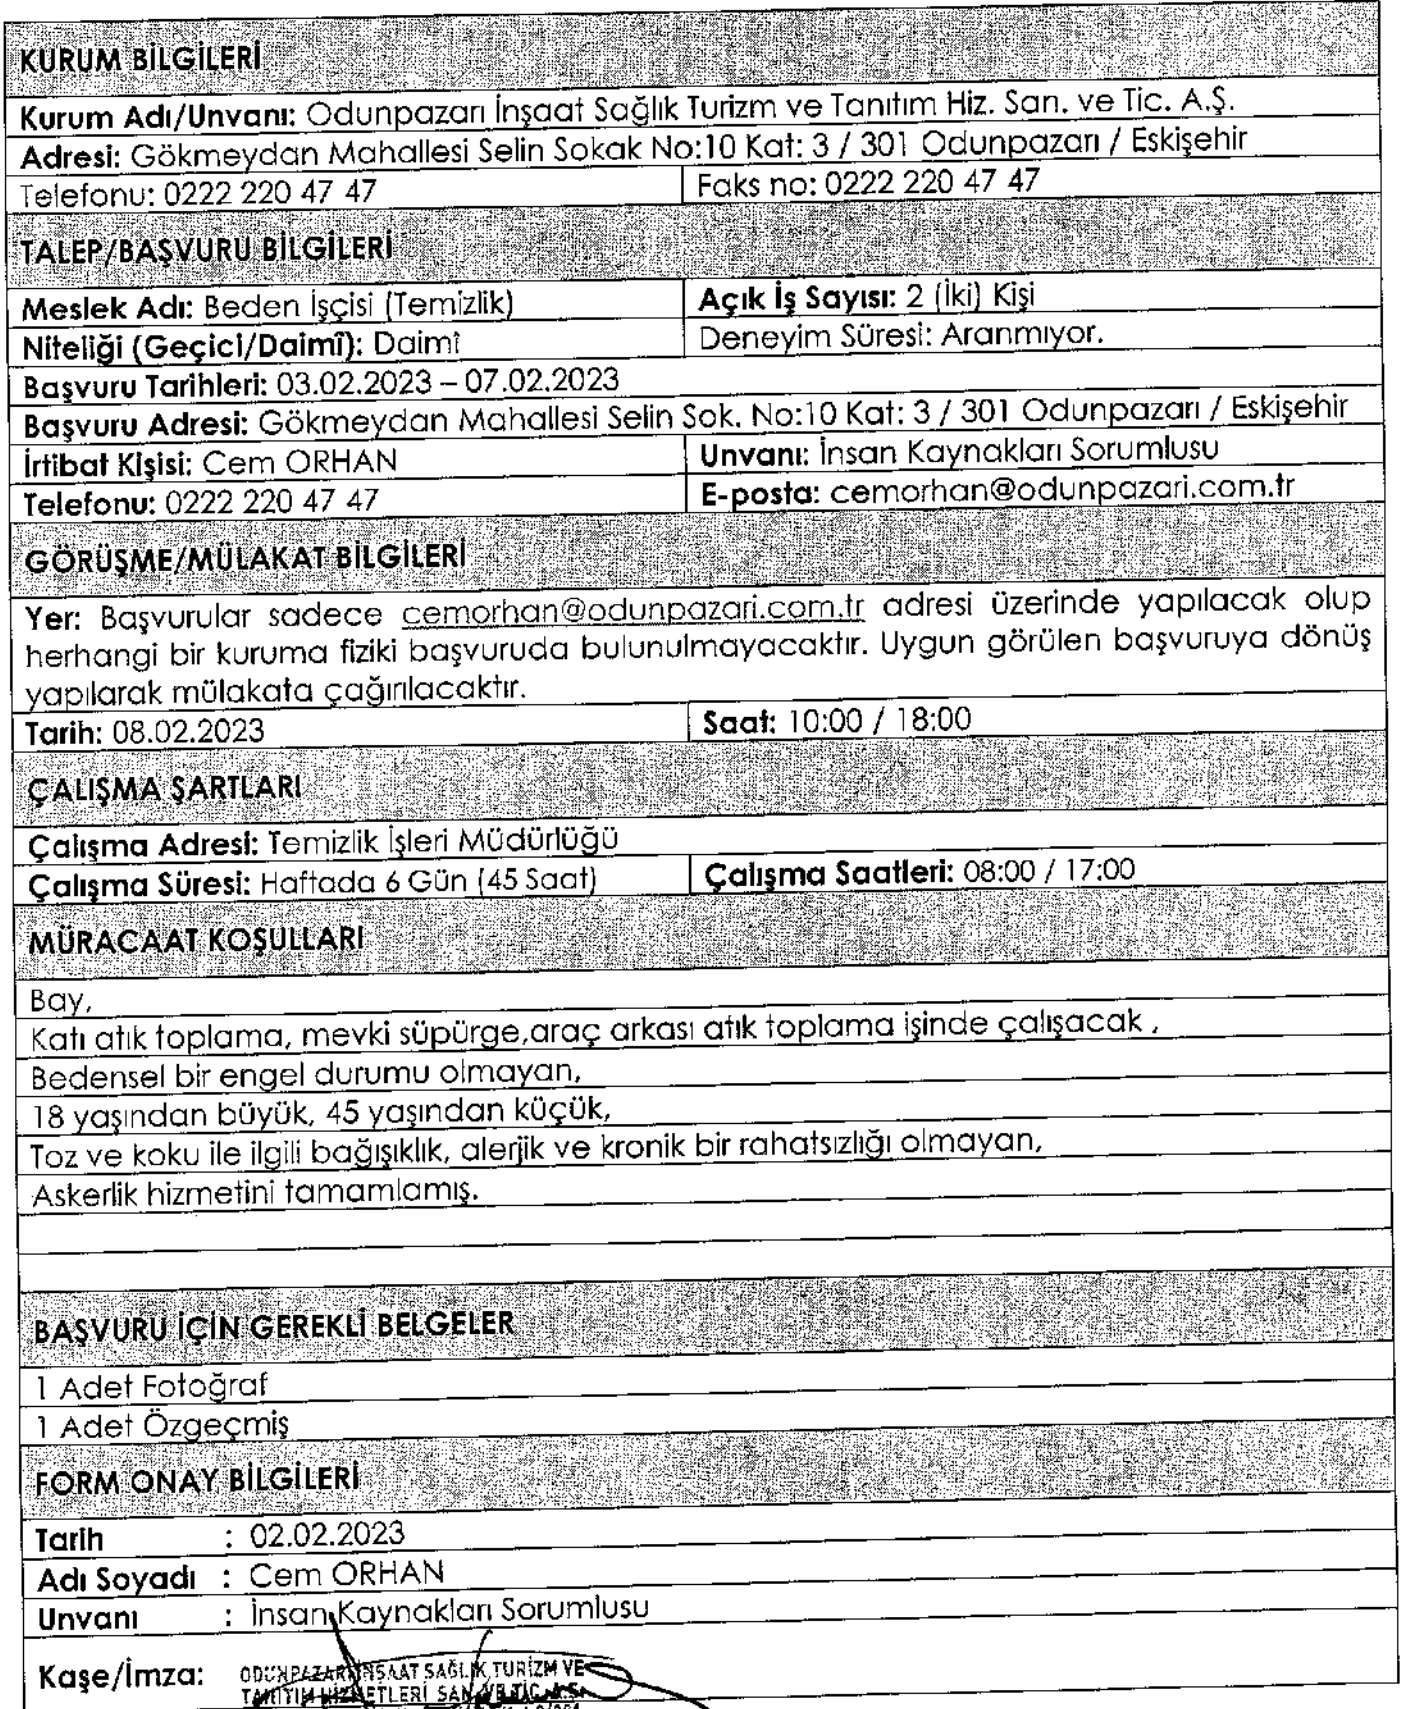 KURUM BİLGİLERİ
Kurum Adı/Unvanı: Odunpazarı İnşaat Sağlık Turizm ve Tanıtım Hiz. San. ve Tic. A.Ş.
Adresi: Gökmeydan Mahallesi Selin Sokak No:10 Kat: 3 / 301 Odunpazarı / Eskişehir
Telefonu: 0222 220 47 47 Faks no: 0222 220 47 47
TALEP/BAŞVURU BİLGİLERİ
Meslek Adı: Beden İşçisi (Temizlik) Açık İş Sayısı: 2 (İki) Kişi
Niteliği (Geçici/Daimî): Daimî Deneyim Süresi: Aranmıyor.
Başvuru Tarihleri: 03.02.2023 – 07.02.2023
Başvuru Adresi: Gökmeydan Mahallesi Selin Sok. No:10 Kat: 3 / 301 Odunpazarı / Eskişehir
İrtibat Kişisi: Cem ORHAN Unvanı: İnsan Kaynakları Sorumlusu
Telefonu: 0222 220 47 47 E-posta: cemorhan@odunpazari.com.tr
GÖRÜŞME/MÜLAKAT BİLGİLERİ
Yer: Başvurular sadece cemorhan@odunpazari.com.tr adresi üzerinde yapılacak olup
herhangi bir kuruma fiziki başvuruda bulunulmayacaktır. Uygun görülen başvuruya dönüş
yapılarak mülakata çağırılacaktır.
Tarih: 08.02.2023 Saat: 10:00 / 18:00
ÇALIŞMA ŞARTLARI
Çalışma Adresi: Temizlik İşleri Müdürlüğü
Çalışma Süresi: Haftada 6 Gün (45 Saat) Çalışma Saatleri: 08:00 / 17:00
MÜRACAAT KOŞULLARI
Bay,
Katı atık toplama, mevki süpürge,araç arkası atık toplama işinde çalışacak ,
Bedensel bir engel durumu olmayan,
18 yaşından büyük, 45 yaşından küçük,
Toz ve koku ile ilgili bağışıklık, alerjik ve kronik bir rahatsızlığı olmayan,
Askerlik hizmetini tamamlamış.
BAŞVURU İÇİN GEREKLİ BELGELER
1 Adet Fotoğraf
1 Adet Özgeçmiş
FORM ONAY BİLGİLERİ
Tarih : 02.02.2023
Adı Soyadı : Cem ORHAN
Unvanı : İnsan Kaynakları Sorumlusu
Kaşe/İmza: ODUNPAZARI İNŞAAT SAĞLIK TURİZM VE
TANITIM HİZMETLERİ SAN. VE TİC. A.Ş.